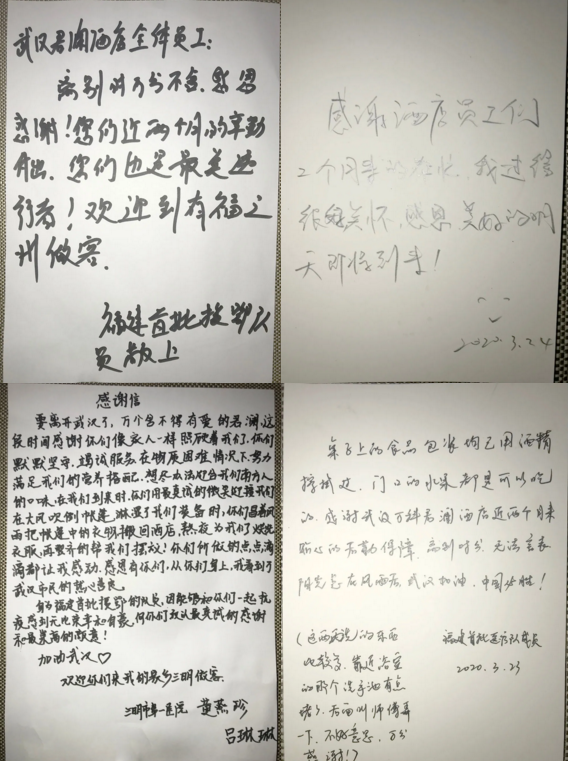 武汉君澜酒店全体员工:
离别时万分不舍,感恩
感谢!您们近两个月的辛勤
付出,您们也是最美逆
行者!欢迎到有福之
州做客.
福建首批援鄂队
员敬上
感谢酒店员工们
2个月来的 我过得
很 关怀,感恩,美好的明
天即将到来!
2020.3.24
感谢信
要离开武汉了,万个舍不得有爱的君澜,这
段时间感谢你们像家人一样照顾着我们,你们
默默坚守,竭诚服务,在物质困难情况下,努力
满足我们的 ,想尽办法迎合我们南方人
的口味,在我们到来时,你们用最真诚的微笑迎接我们
在大风吹倒帐篷,淋湿了我们装备时,你们冒着风
雨把帐篷中的衣物搬回酒店,熬夜为我们烘洗
衣服,再整齐的帮我们摆放!你们所做的点点滴
滴都让我感动,感恩有你们,从你们身上,我看到了
武汉市民的 善良.
身为福建首批援鄂的队员,因能够和你们一起抗
疫感到无比荣幸和自豪,向你们致以最真诚的感谢
和最崇高的敬意!
加油武汉♡
欢迎你们来我的家乡三明做客.
三明市第一医院 黄燕珍
吕琳琳
桌子上的食品包装均已用酒精
擦拭过,门口的水果都是可以吃
的,感谢武汉万科君澜酒店近两个月来
贴心的后勤保障,离别时分,无法言表
阳光总在风雨后,武汉加油,中国必胜!
福建首批医疗队队员
2020.3.23
的东西
比较多,靠近浴室
的那个洗手池有点
堵了,后面叫师傅弄
一下,不好意思,万分
感谢!)